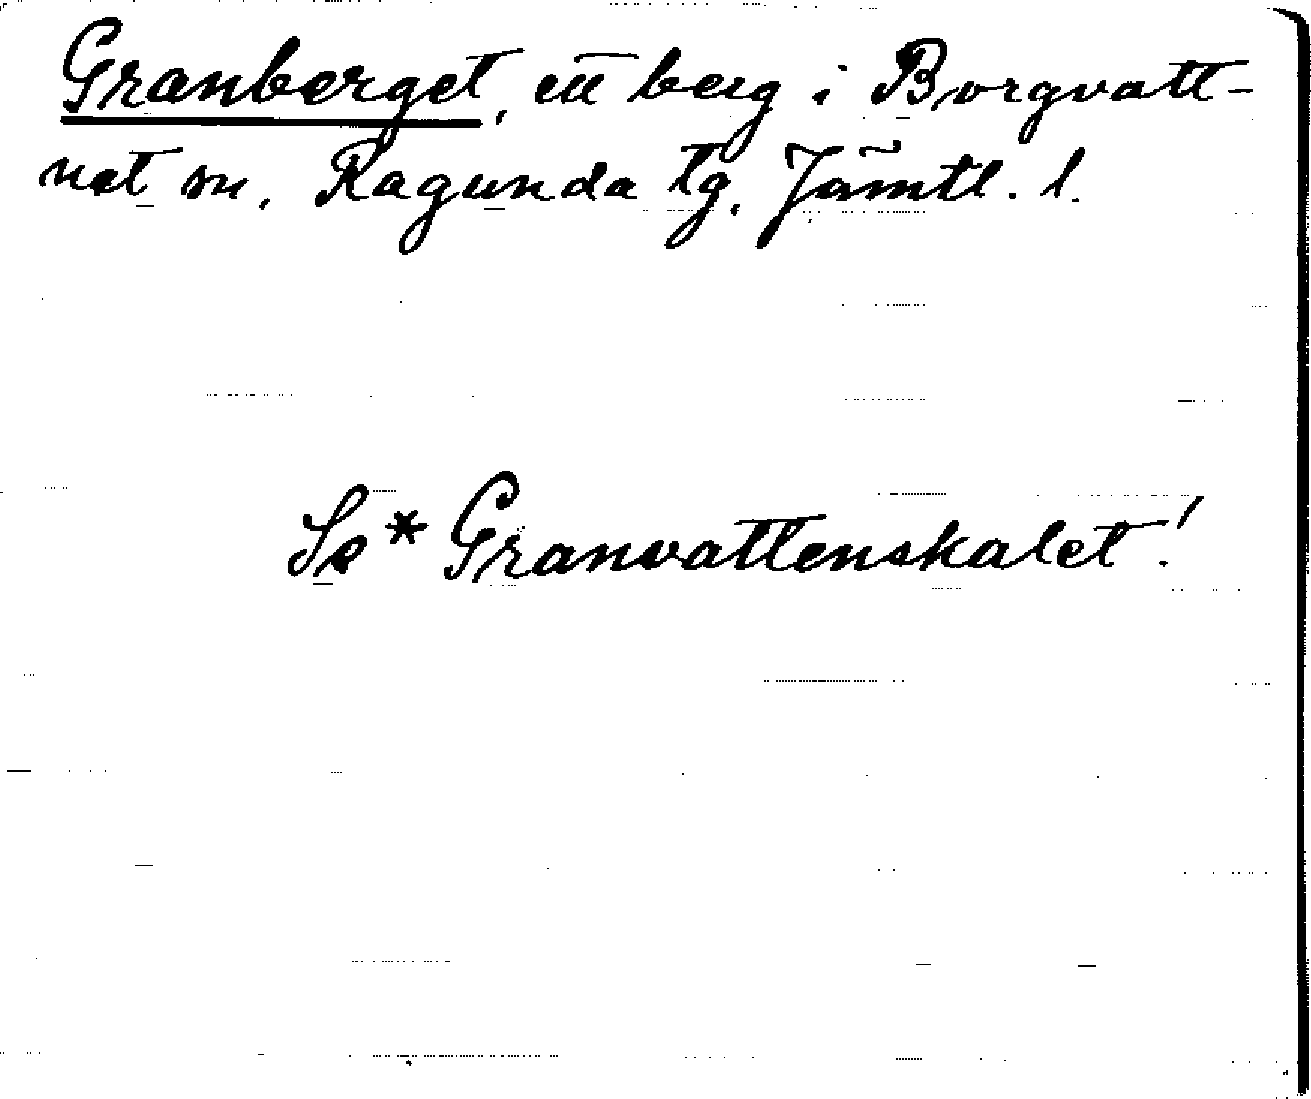 Granberget, ett berg i Borgvatt-
net sn, Ragunda tg, Jämtl. l.
Se * Granvattenskalet!